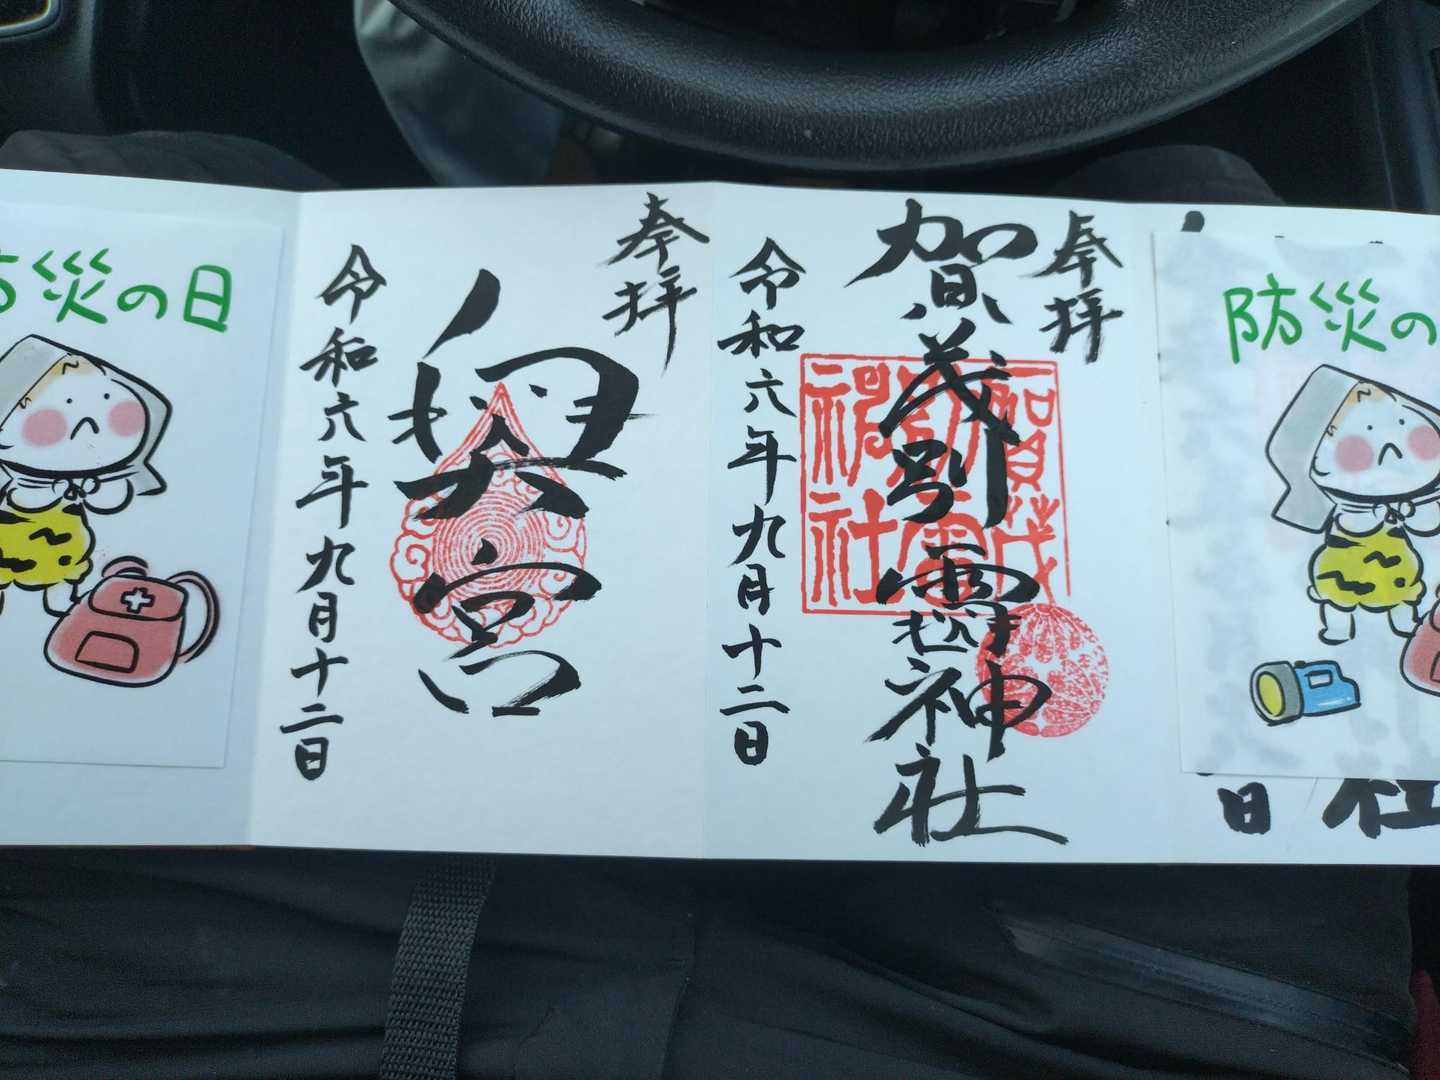 防災の
日
社
奉拝
賀茂別雷神社
賀茂
別雷
神社
令和六年九月十二日
奉拝
奥宮
令和六年九月十二日
災の日